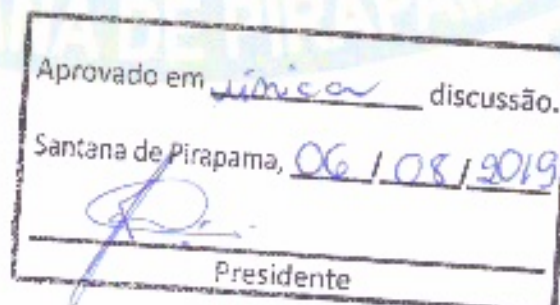 DE PIRAPAMA
Aprovado em única discussão.
Santana de Pirapama, 06 / 08 / 2019
Presidente